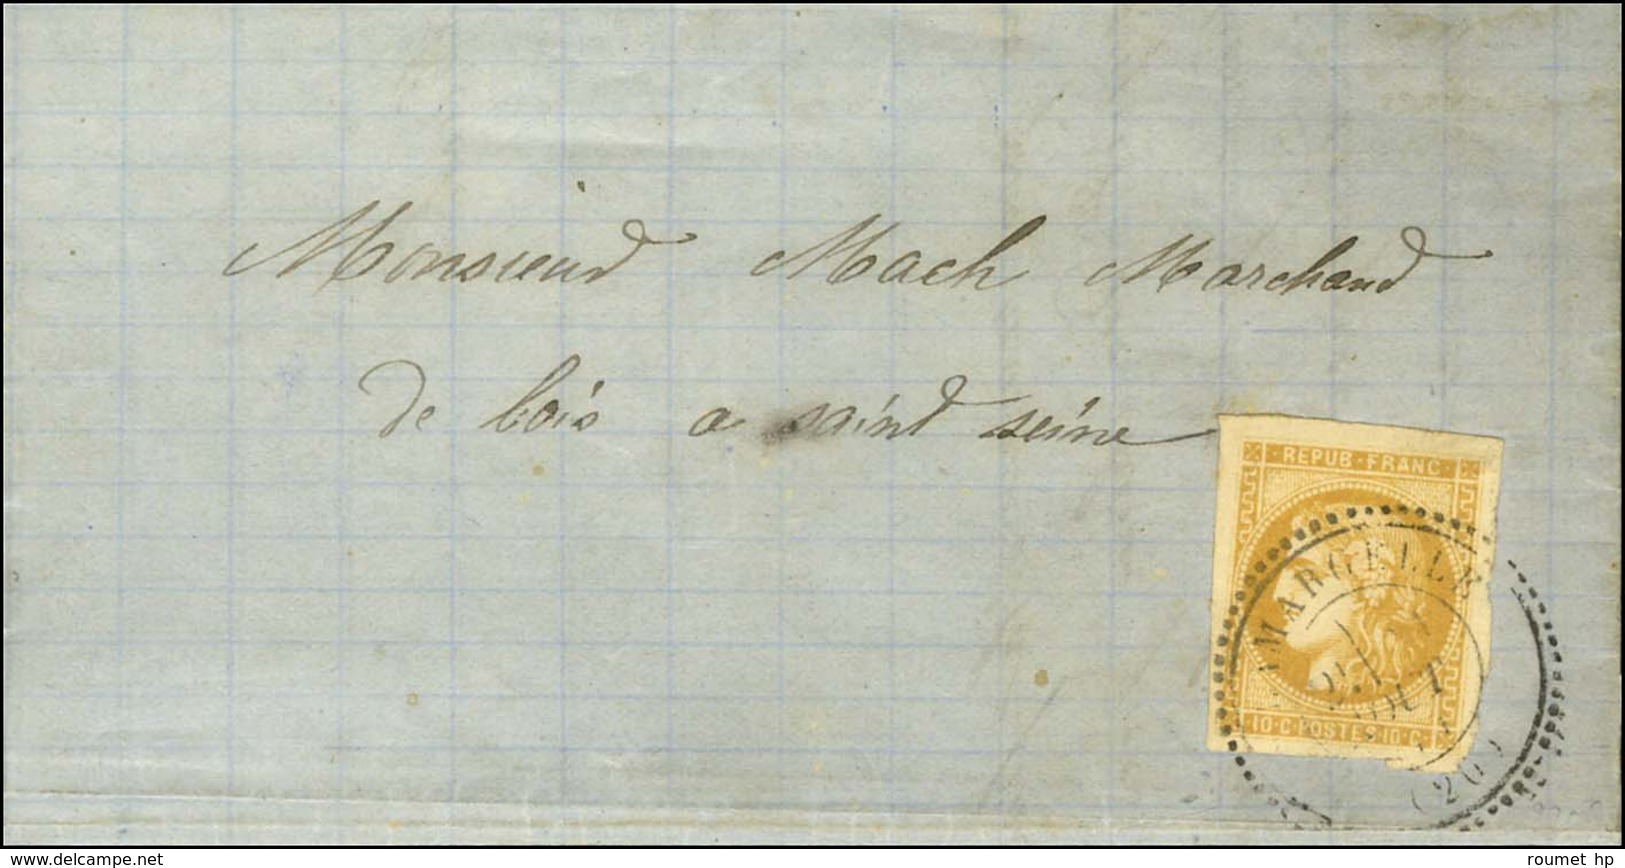 Monsieur Mach Marchand
de bois a saint seine
REPUB·FRANC
MARGELLE
AOUT
10·C·POSTES·10·C
(20)
www.delcampe.net
roumet hp